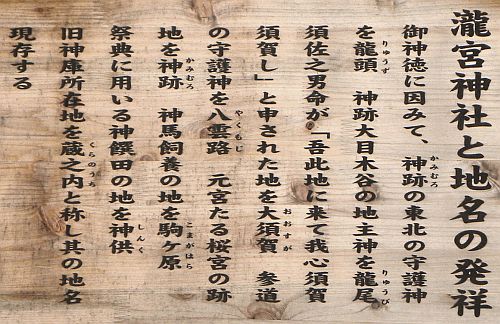 瀧宮神社と地名の発祥
御神徳に因みて、神跡の東北の守護神
を龍頭　神跡大目木谷の地主神を龍尾
須佐之男命が「吾此地に来て我心須賀
須賀し」と申された地を大須賀　参道
の守護神を八雲路　元宮たる桜宮の跡
地を神跡　神馬飼養の地を駒ヶ原
祭典に用いる神饌田の地を神供
旧神庫所在地を蔵之内と称し其の地名
現存する